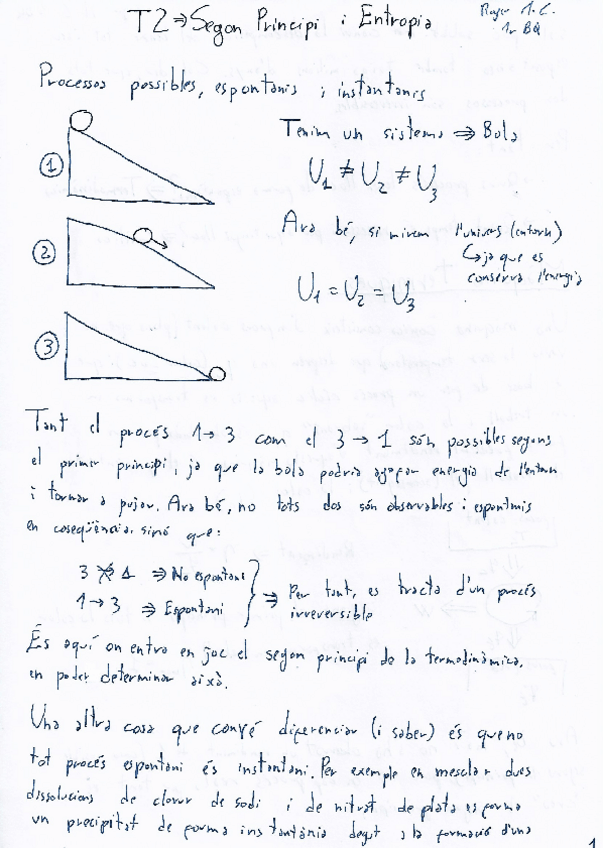 T2 ⇒ Segon Principi i Entropia
Roger M. C.
1r BQ
Processos possibles, espontanis i instantanis
1
Tenim un sistema ⇒ Bola
U1 ≠ U2 ≠ U3
2
Ara bé, si mirem l'univers (entorn)
↳ ja que es
conserva l'energia
U1 = U2 = U3
3
Tant el procés 1→3 com el 3→1 són possibles segons
el primer principi, ja que la bola podria agafar energia de l'entorn
i tornar a pujar. Ara bé, no tots dos són observables i espontanis
en coseqüència. sinó que:
3 ↛ 1 ⇒ No espontani
1→3 ⇒ Espontani
⇒ Per tant, es tracta d'un procés
irreversible
És aquí on entra en joc el segon principi de la termodinàmica,
en poder determinar això.
Una altra cosa que convé diferenciar (i saber) és que no
tot procés espontani és instantani. Per exemple en mesclar dues
dissolucions de clorur de sodi i de nitrat de plata es forma
un precipitat de forma instantània degut a la formació d'una
1